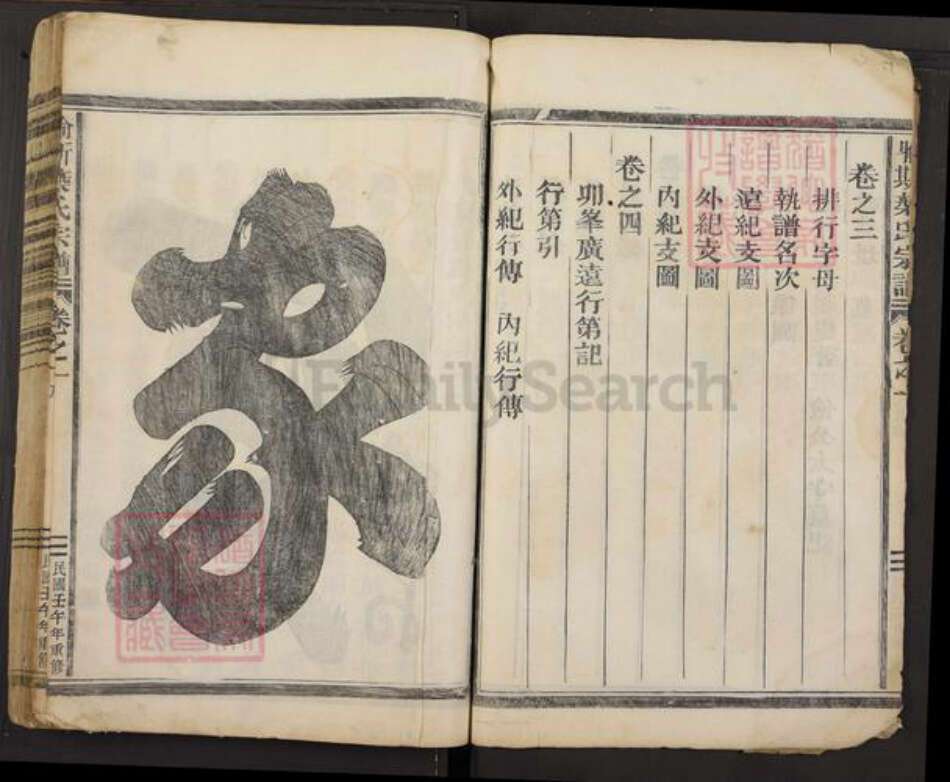 卷之三
排行字母
執譜名次
遠紀支圖
外紀支圖
內紀支圖
卷之四
卯峯廣遠行第記
行第引
外紀行傳 內紀行傳
家
氏宗譜
卷之一
民國壬午年重修
FamilySearch